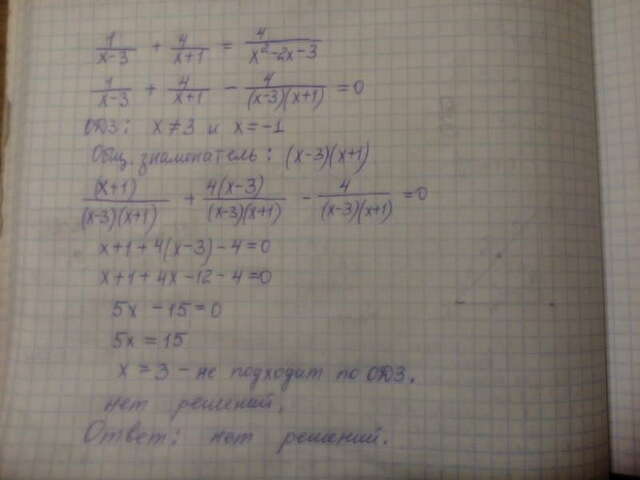 1/(x-3) + 4/(x+1) = 4/(x²-2x-3)
1/(x-3) + 4/(x+1) - 4/((x-3)(x+1)) = 0
ОДЗ: x≠3 и x=-1
Общ. знаменатель: (x-3)(x+1)
(x+1)/((x-3)(x+1)) + 4(x-3)/((x-3)(x+1)) - 4/((x-3)(x+1)) = 0
x+1+4(x-3)-4=0
x+1+4x-12-4=0
5x -15=0
5x=15
x=3 - не подходит по ОДЗ.
нет решений.
Ответ: нет решений.